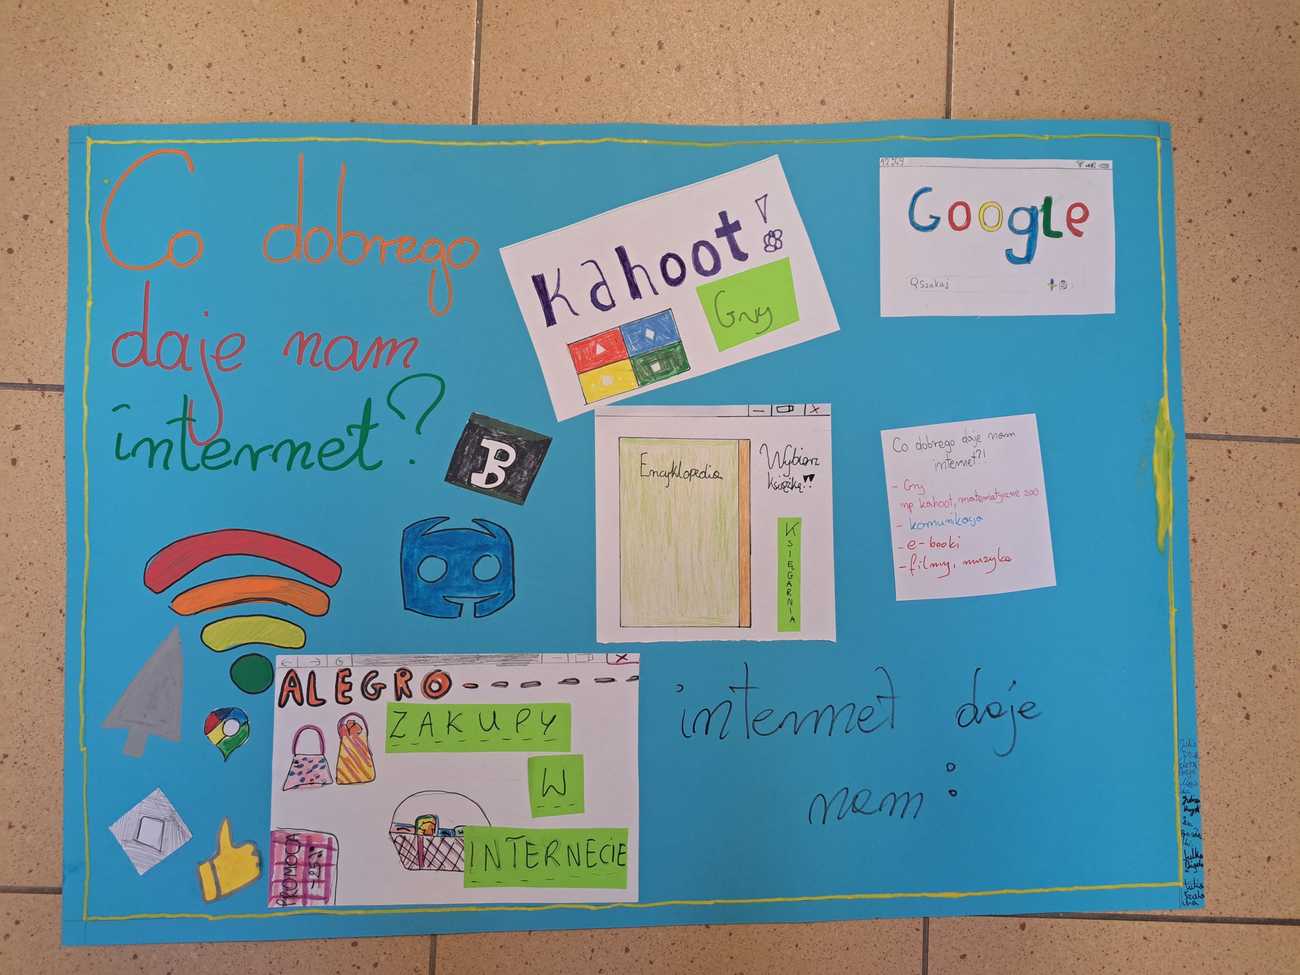 Co dobrego
daje nam
internet?
Kahoot!
Gry
12:49
Google
Szukaj
B
Encyklopedia
Wybierz
książkę!!
KSIĘGARNIA
Co dobrego daje nam
internet?!
- Gry
np kahoot, matematyczne zoo
- komunikacja
- e-booki
- filmy, muzyka
ALEGRO
ZAKUPY
W
INTERNECIE
PROMOCJA
internet daje
nam:
Julka